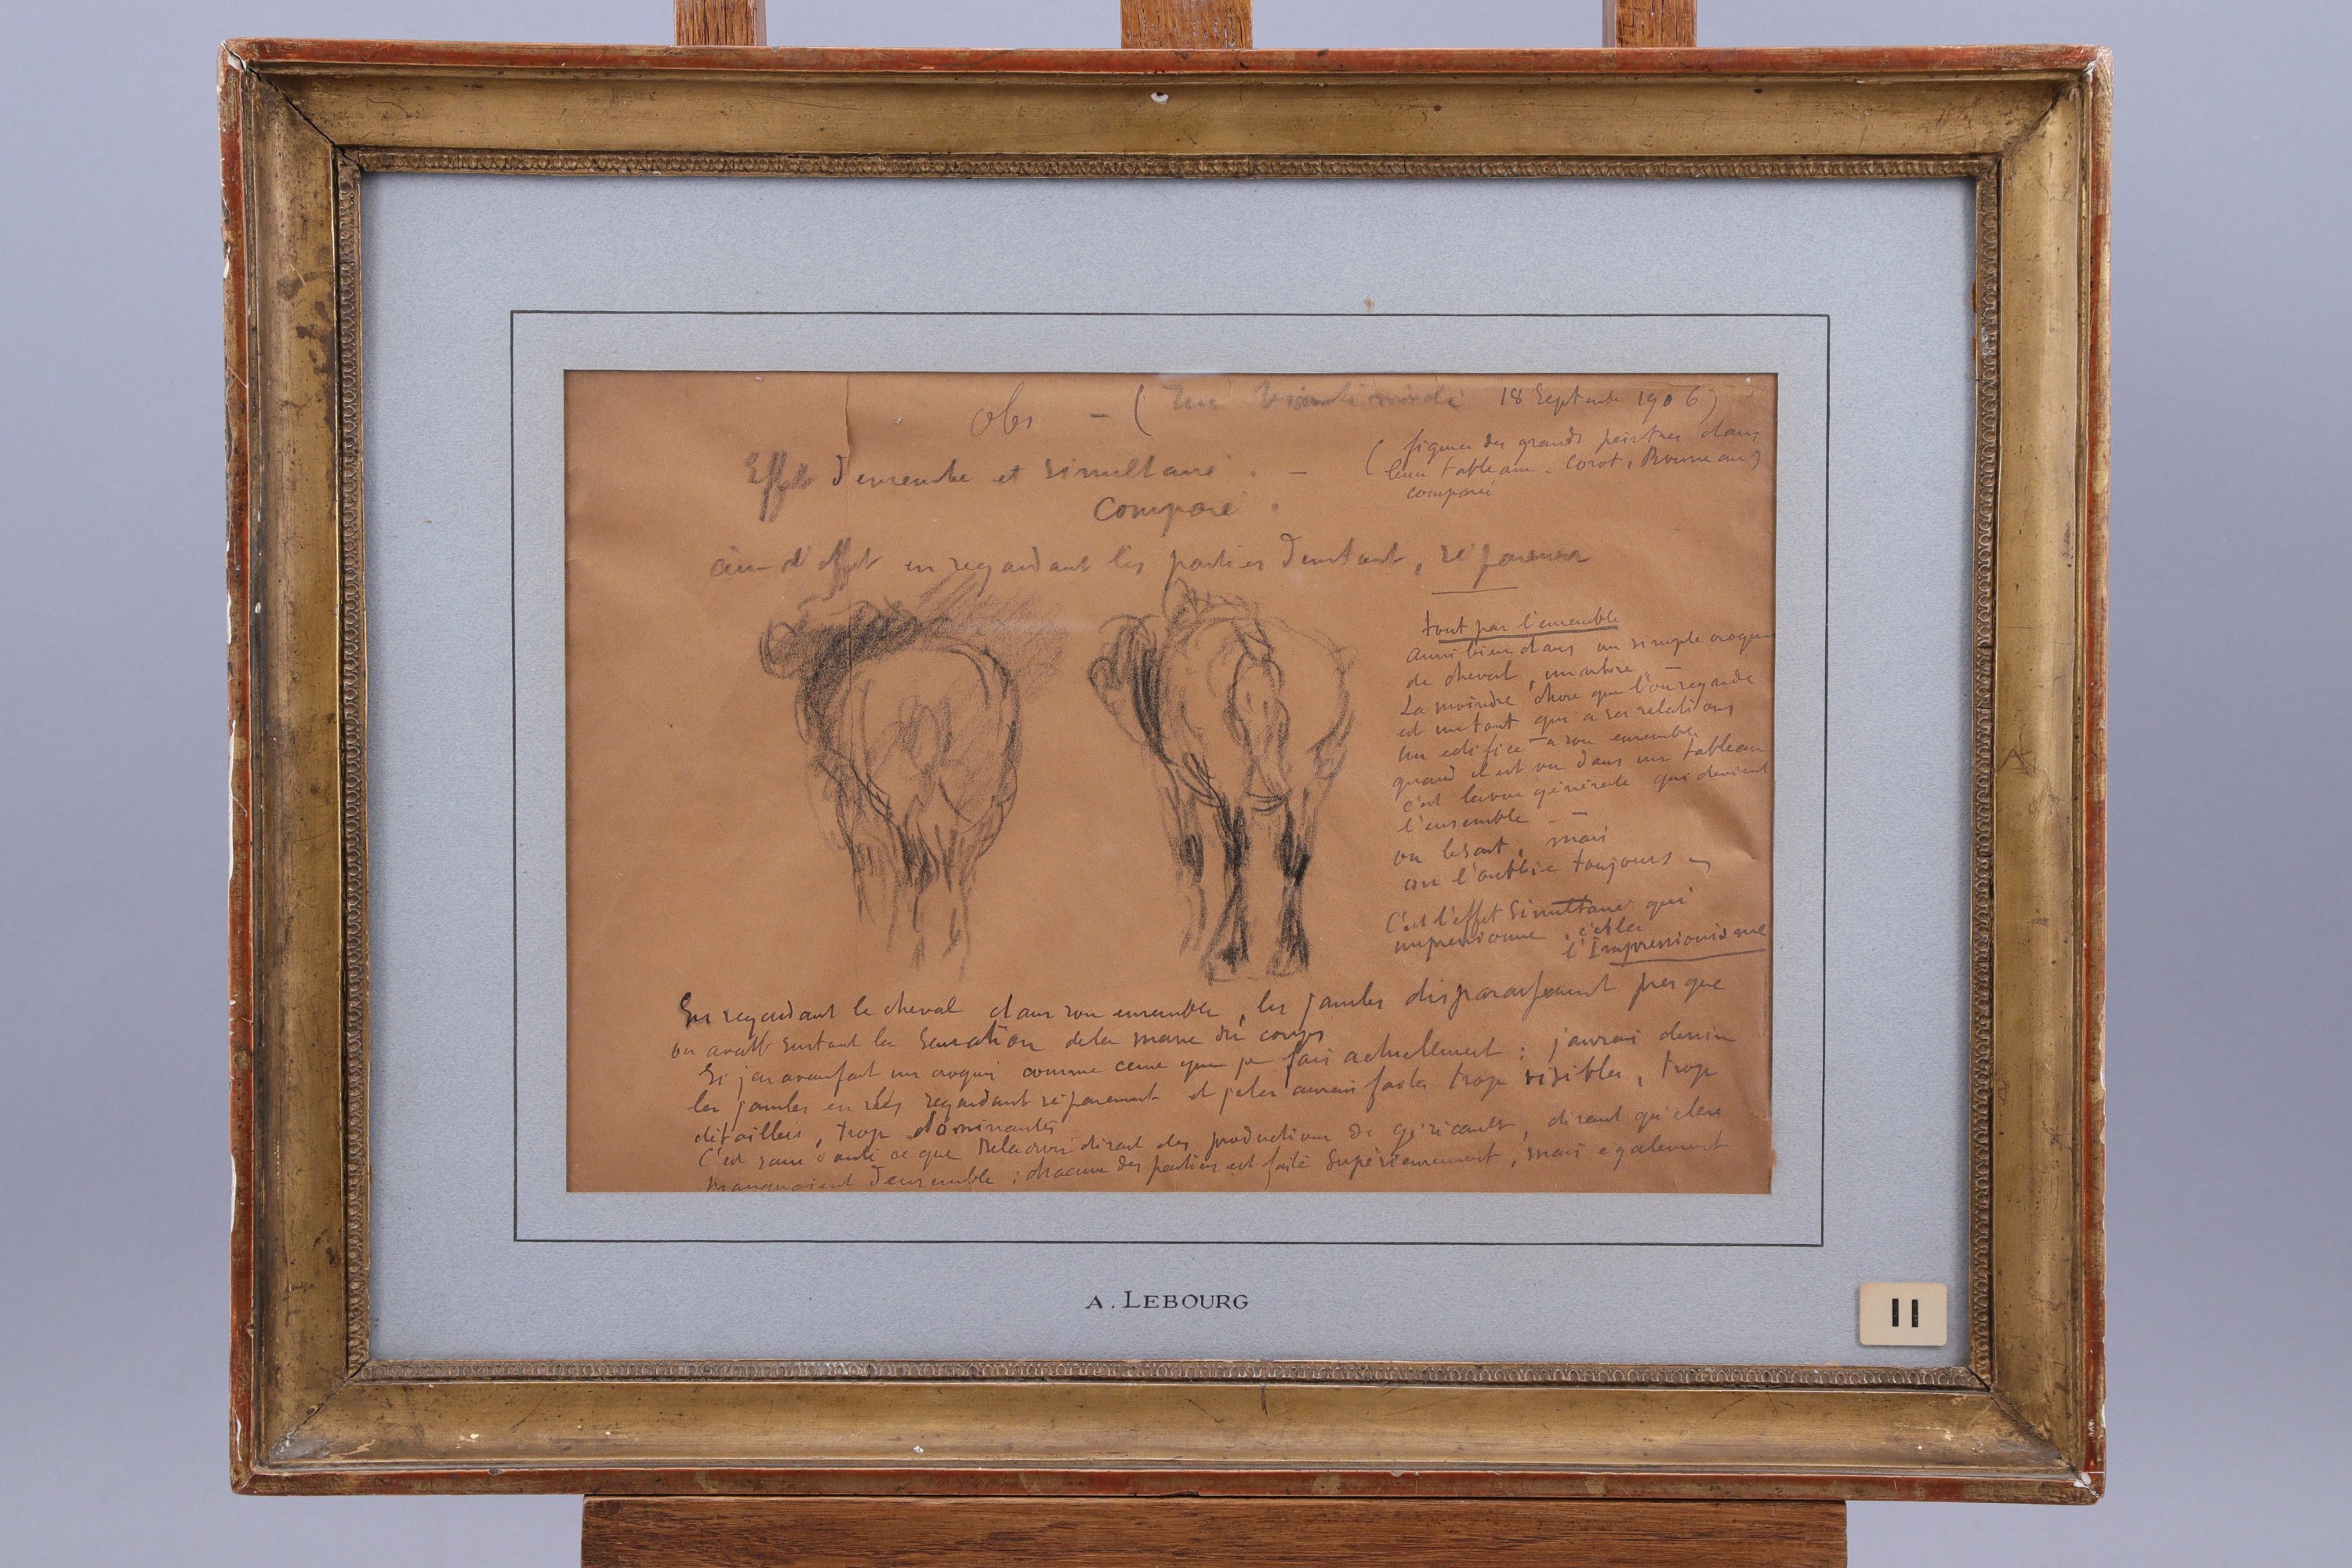 Obs - ( 18 Septembre 1906)
(figures des grands peintres dans
leur tableau - Corot,
comparé
Effet d'ensemble et simultané . -
Comparé .
d'effet en regardant les parties
tout par l'ensemble
aussi bien dans un simple croquis
de cheval, un arbre, -
La moindre chose que l'on regarde
est un tout qui a ses relations
un edifice a son ensemble
quand il est vu dans un tableau
c'est la vue générale qui devient
l'ensemble - -
on le sait, mais
on l'oublie toujours -
C'est l'effet simultané qui
impressionne, c'est la
l'Impressionisme
En regardant le cheval dans son ensemble, les jambes disparaissent presque
on avait surtout la Sensation de la masse du corps
Si j'en avais fait un croquis comme ceux que je fais actuellement : j'aurai dessin
les jambes en les regardant séparement et je les aurais faites trop visibles, trop
détaillées, trop dominantes
C'est sans doute ce que Delacroix disait des productions de Géricault, disant qu'elles
manquaient d'ensemble : chacune des parties est faite supérieurement, mais egalement
A. LEBOURG
11